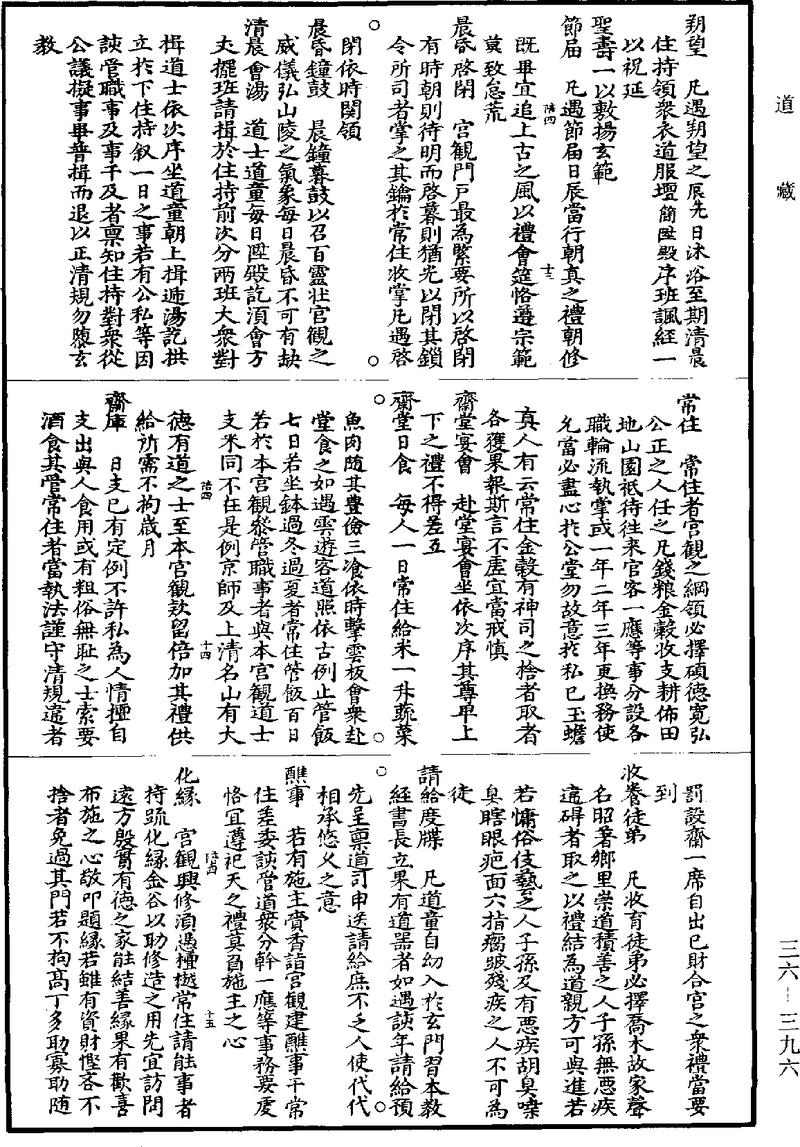 道藏
三六—三九六
朔望　凡遇朔望之辰先日沐浴至期清晨
住持領衆衣道服壇簡陞殿序班諷經一
以祝延
聖壽一以敷揚玄範
節届　凡遇節届日辰當行朝真之禮朝修
既畢宜追上古之風以禮會筵恪遵宗範
莫致怠荒
晨昏啓閉　宫觀門戸最為緊要所以啓閉
有時朝則待明而啓暮則猶光以閉其鎖
令所司者掌之其鑰於常住收掌凡遇啓
閉依時関領
晨昏鐘鼓　晨鐘暮鼓以召百靈壯宫觀之
威儀弘山陵之氣象每日晨昏不可有缺
清晨會湯　道士道童每日陞殿訖湏會方
丈擺班請揖於住持前次分兩班大衆對
揖道士依次序坐道童朝上揖逓湯訖拱
立於下住持叙一日之事若有公私等因
該管職事及事干及者禀知住持對衆從
公議擬事畢普揖而退以正清規勿隳玄
教
常住　常住者宫觀之綱領必擇碩德寛弘
公正之人任之凡錢粮金榖收支耕佈田
地山園祗待徃来官客一應等事分設各
職輪流執掌或一年二年三年更換務使
允當必盡心於公堂勿故意於私已玉蟾
真人有云常住金榖有神司之捨者取者
各獲果報斯言不虗宜當戒慎
齋堂宴會　赴堂宴會坐依次序其尊卑上
下之禮不得差互
齋堂日食　每人一日常住給米一升蔬菜
魚肉随其豊儉三飡依時擊雲板會衆赴
堂食之如遇雲遊客道照依古例止管飯
七日若坐鉢過冬過夏者常住管飯百日
若於本宫觀叅管職事者與本宫觀道士
支米同不在是例京師及上清名山有大
德有道之士至本宫觀欵留倍加其禮供
給所需不拘歳月
齋庫　日支已有定例不許私為人情擅自
支出與人食用或有粗俗無耻之士索要
酒食其管常住者當執法謹守清規違者
罰設齋一席自出已財合宫之衆禮當要
到
收養徒弟　凡收育徒弟必擇喬木故家聲
名昭著鄉里崇道積善之人子孫無悪疾
違碍者取之以禮結為道親方可與進若
若慵俗伎藝之人子孫及有悪疾胡臭啞
臭瞎眼疤面六指癭跛殘疾之人不可為
徒
請給度牒　凡道童自幼入於玄門習本教
經書長立果有道噐者如遇該年請給預
先呈禀道司申送請給庶不乏人使代代
相承悠乆之意
醮事　若有施主賫香詣宫觀建醮事干常
住差委該管道衆分幹一應等事務要虔
恪宜遵祀天之禮莫負施主之心
化縁　宫觀興修湏憑檀樾常住請能事者
持疏化縁金谷以助修造之用先宜訪問
逺方殷實有德之家能結善縁果有歡喜
布施之心敬叩題縁若雖有資財慳吝不
捨者免過其門若不拘髙丁多助寡助随
陪四
十三
陪四
十四
陪四
十五